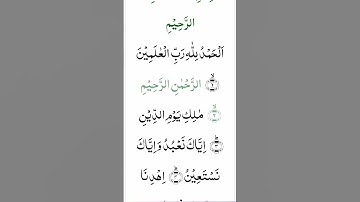 الرَّحِيْمِ
اَلْحَمْدُ لِلّٰهِ رَبِّ الْعٰلَمِيْنَ
۝١ الرَّحْمٰنِ الرَّحِيْمِ
۝٢ مٰلِكِ يَوْمِ الدِّيْنِ
۝٣ اِيَّاكَ نَعْبُدُ وَاِيَّاكَ
نَسْتَعِيْنُ ۝٤ اِهْدِنَا